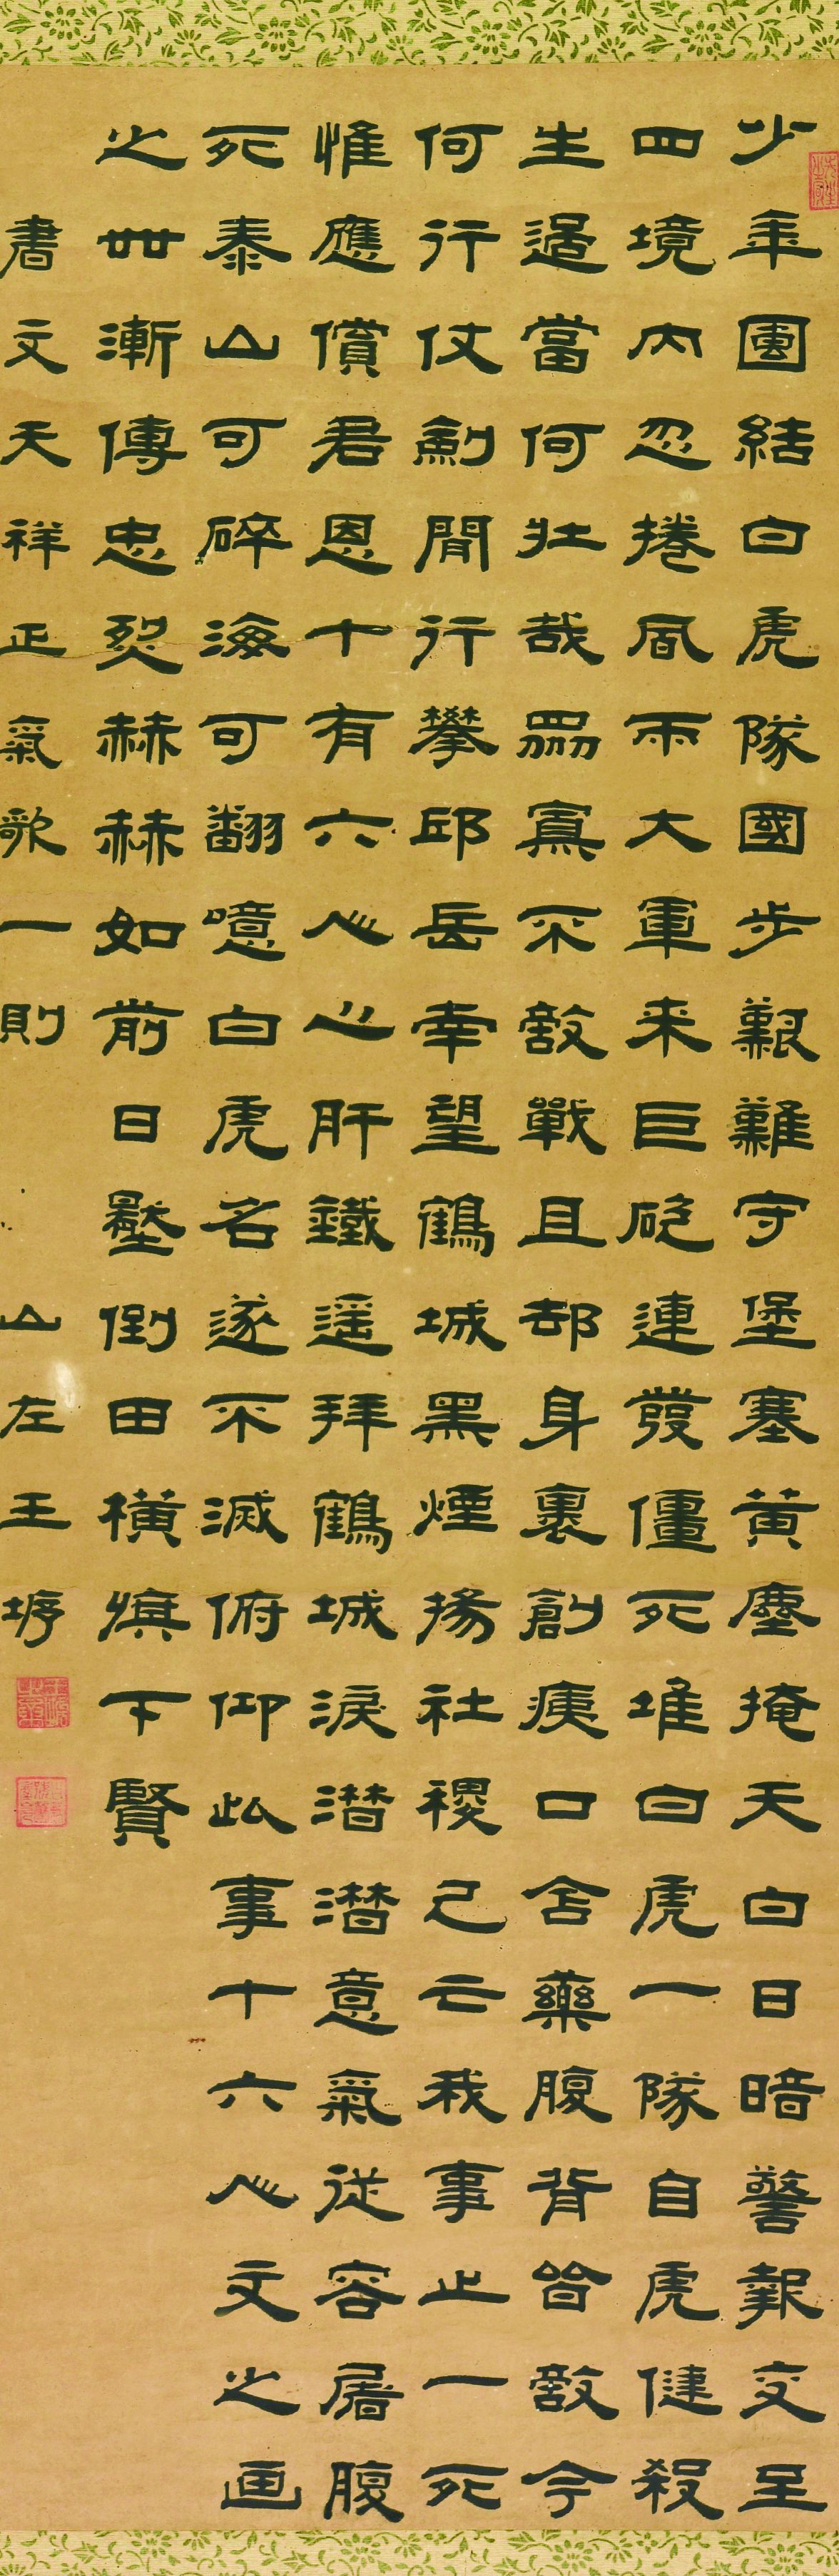 少年團結白虎隊國步艱難守堡塞黄塵掩天白日暗警報交呈
四境内忽捲風雨大軍来巨砲連發僵死堆白虎一隊自虎健殺
生過當何壯哉寡不敵戰且却身裹創痍口含藥腹背皆敵今
何行仗劍間行攀邱岳幸望鶴城黑煙揚社稷已亡我事止一死
惟應償君恩十有六人心肝鐵遥拜鶴城淚潛潛意氣従容屠腹
死泰山可碎海可翻噫白虎名遂不滅俯仰此事十六人文之画
之世漸傳忠烈赫赫如前日壓倒田橫慎下賢
書文天祥正氣歌一則 山左王垿